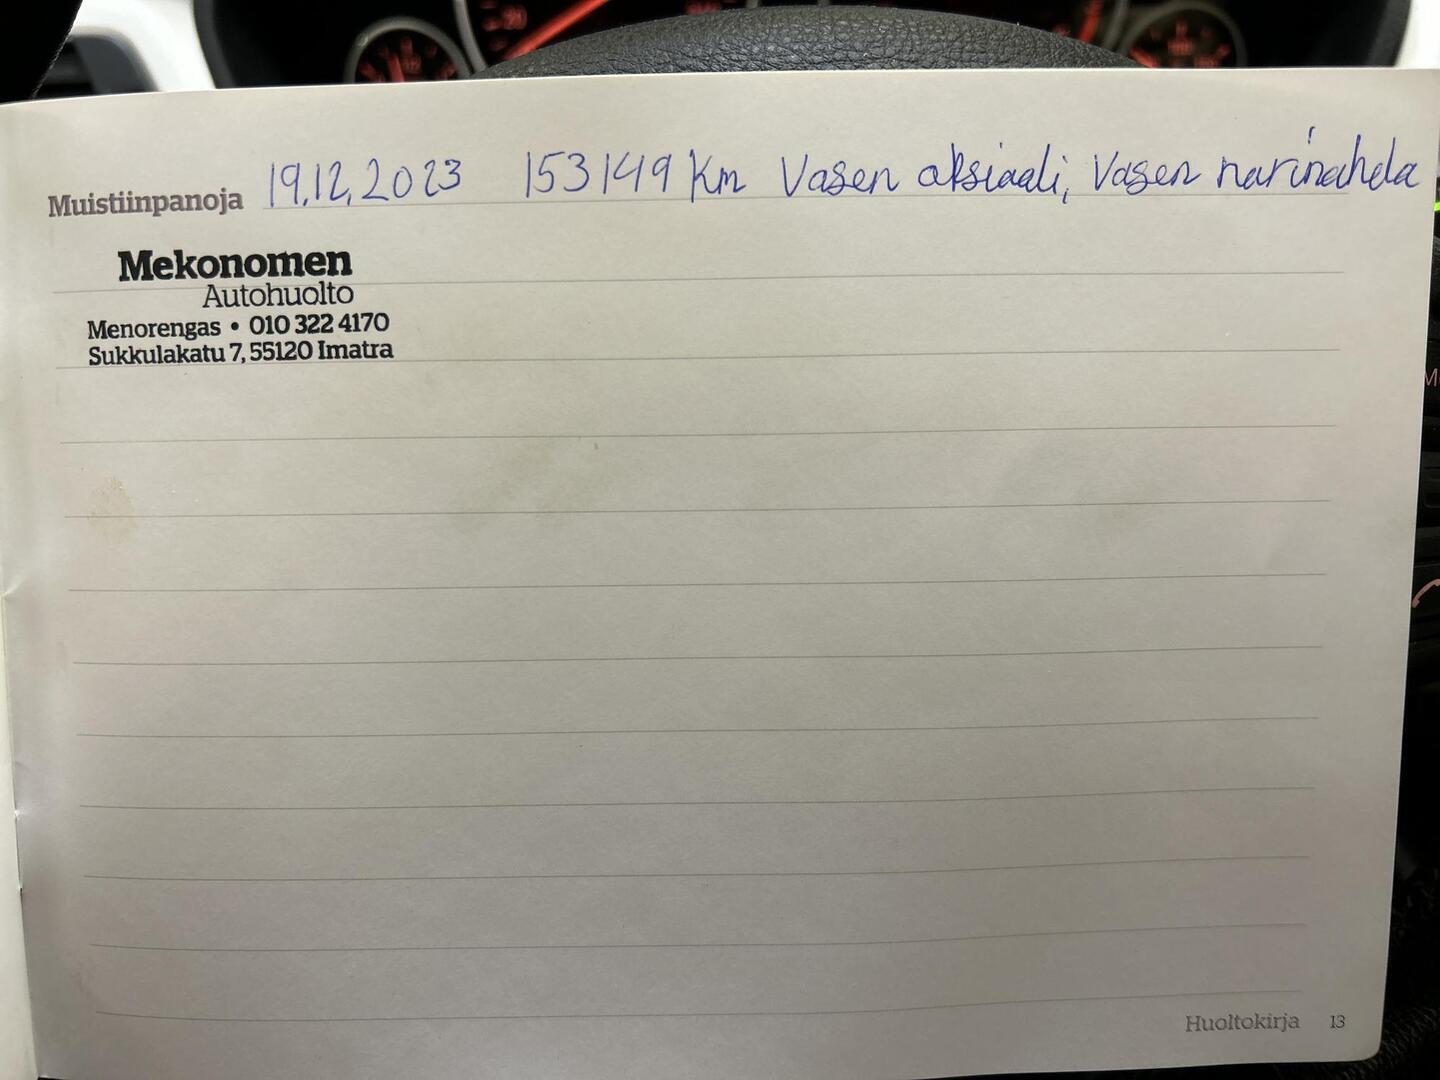 Muistiinpanoja 19.12.2023 153149 km Vasen aksiaali, Vasen narinahela
Mekonomen
Autohuolto
Menorengas • 010 322 4170
Sukkulakatu 7, 55120 Imatra
Huoltokirja 13